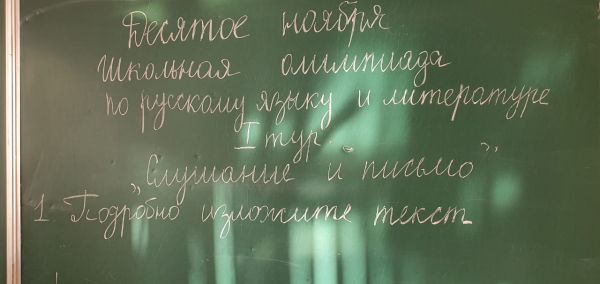 Десятое ноября
Школьная олимпиада
по русскому языку и литературе
I тур.
„Слушание и письмо”
1. Подробно изложите текст